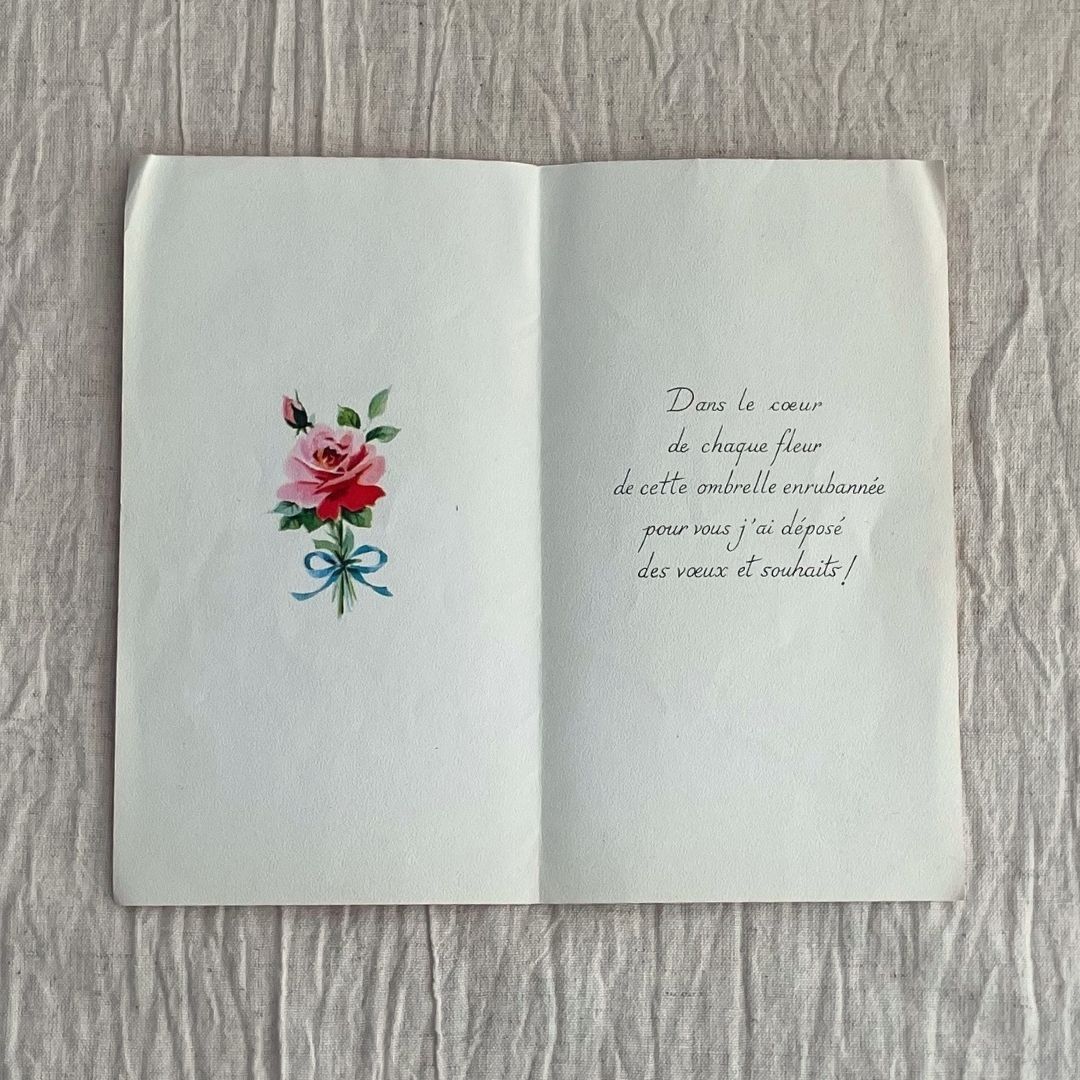 Dans le cœur
de chaque fleur
de cette ombrelle enrubannée
pour vous j'ai déposé
des vœux et souhaits !